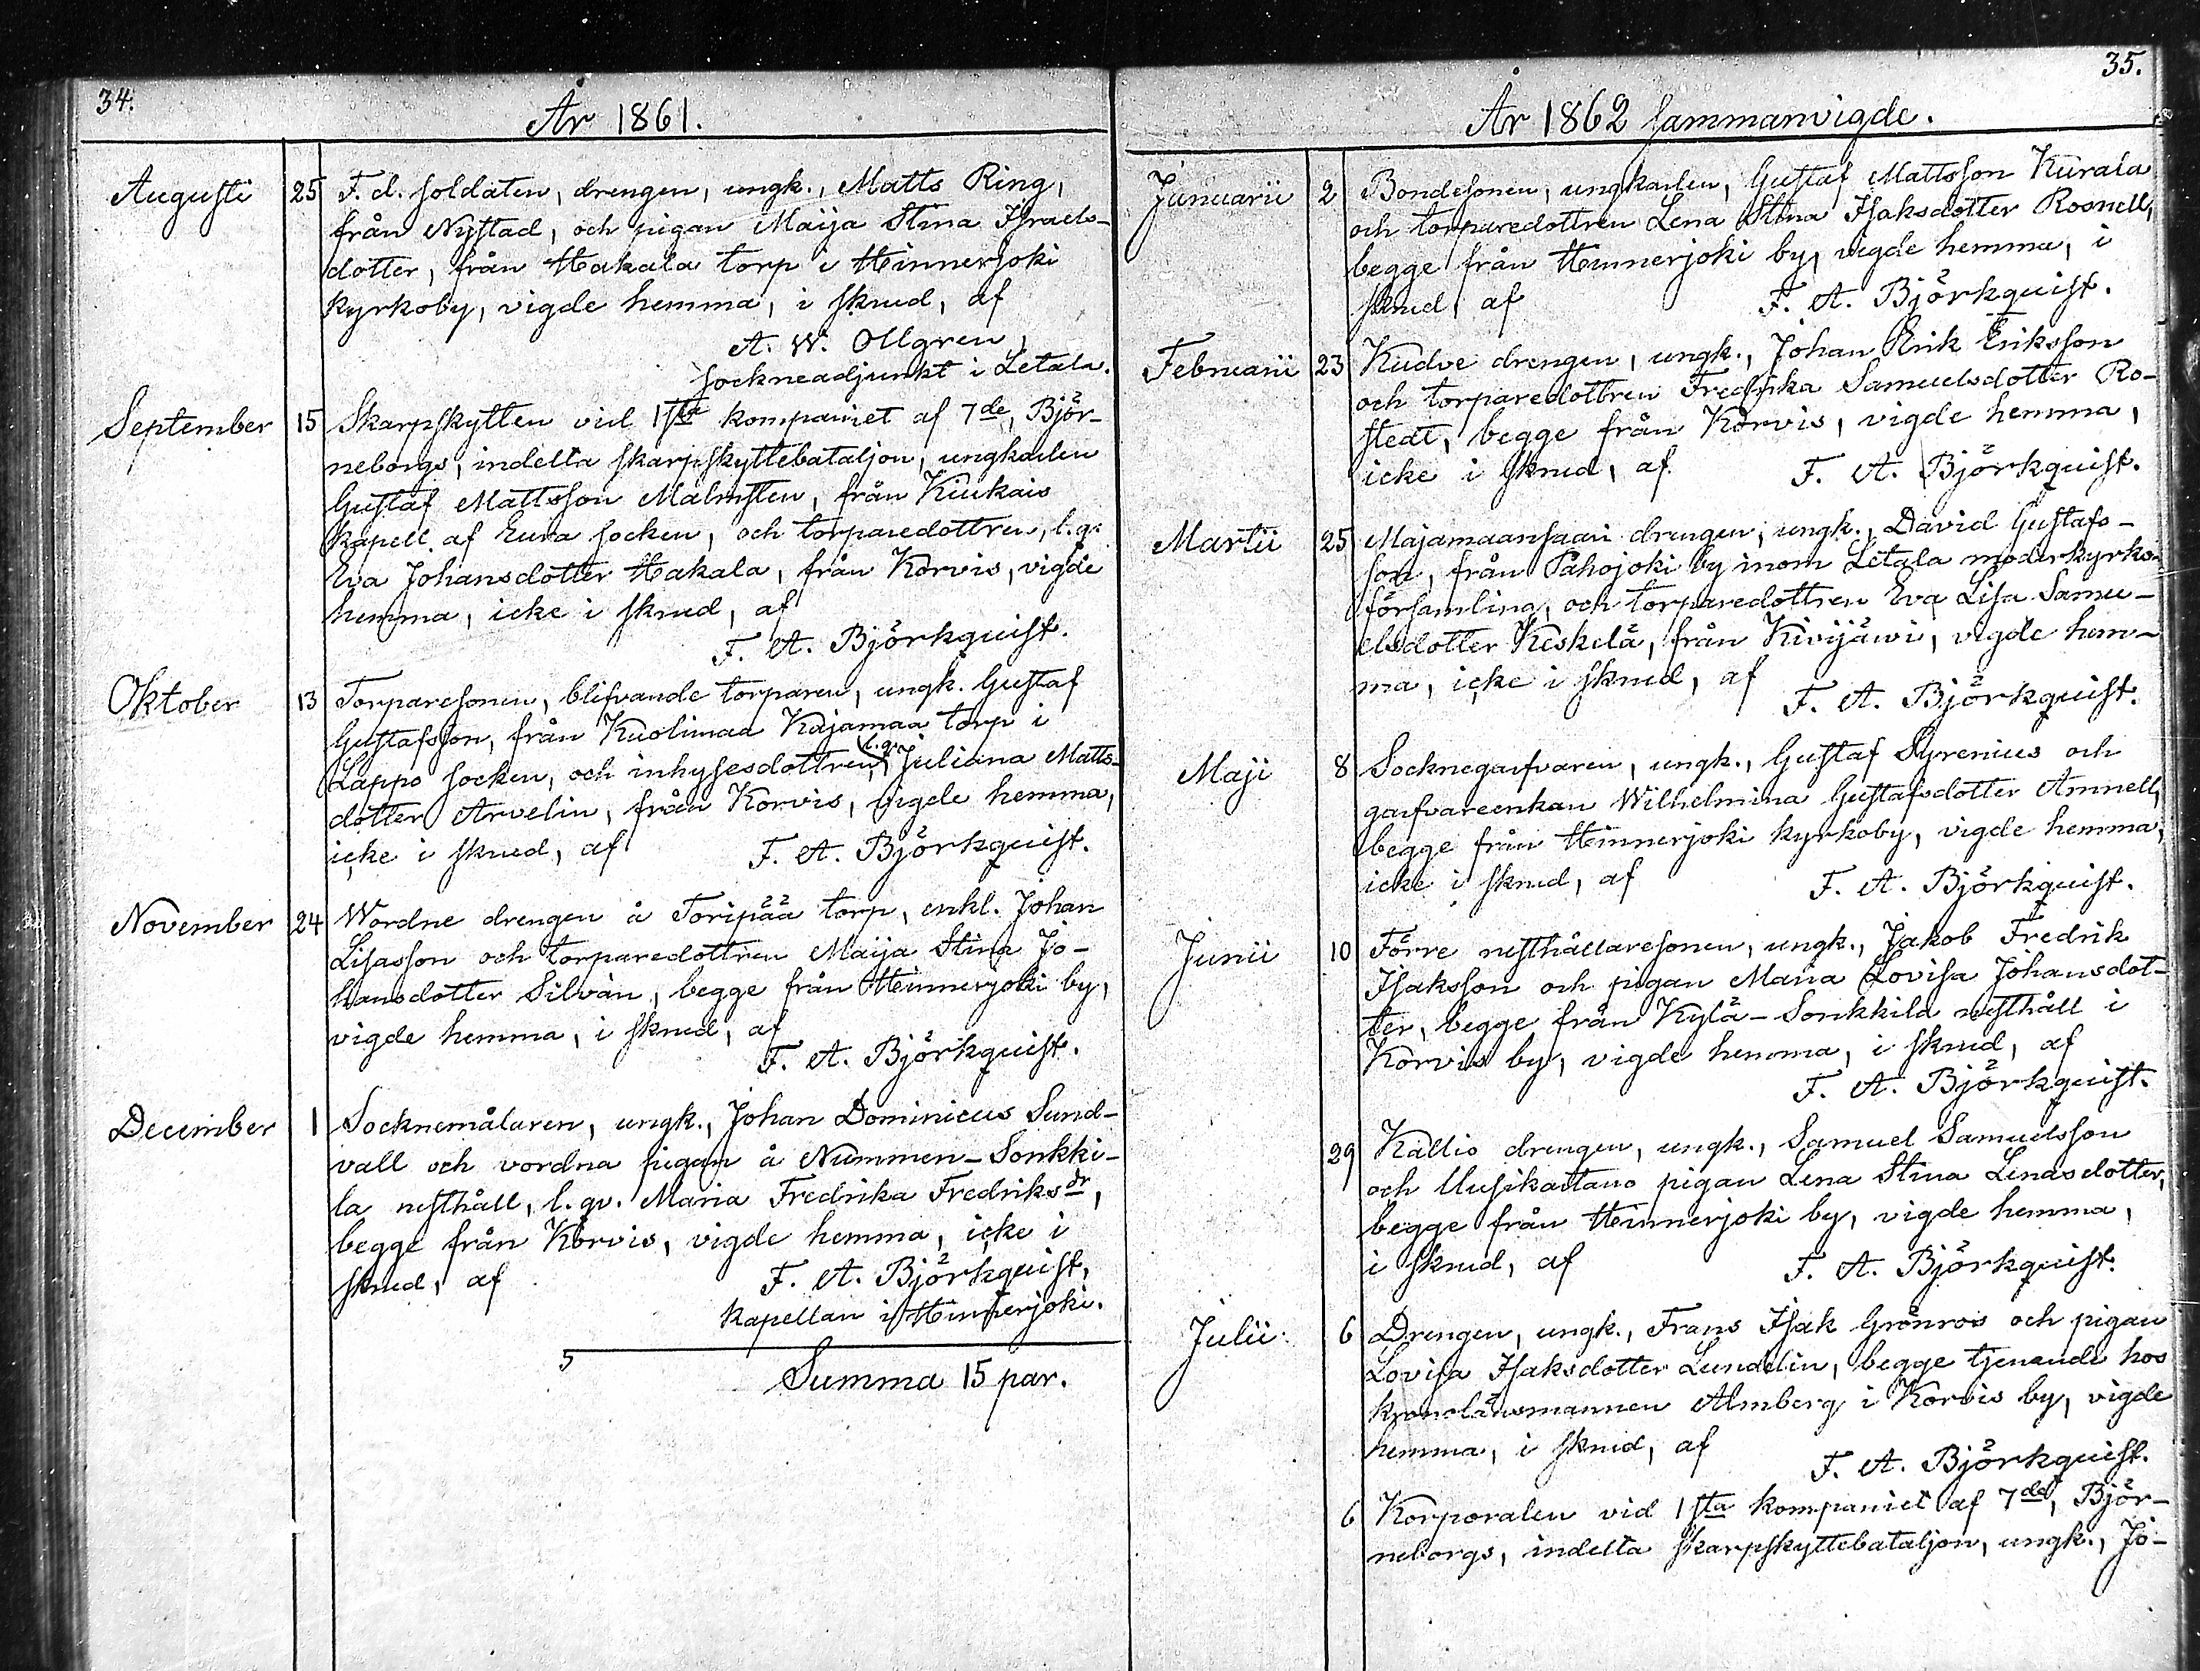 34.
År 1861.
Augusti 25 F. d. soldaten, drengen, ungk., Matts Ring,
från Nystad, och pigan Maija Stina Israels-
dotter, från Hakala torp i Hinnerjoki
kyrkoby, vigde hemma, i skrud, af
A. W. Ollgren,
sockneadjunkt i Letala.
September 15 Skarpskytten vid 1sta kompaniet af 7de, Björ-
neborgs, indelta skarpskyttebataljon, ungkarlen
Gustaf Mattsson Malmsten, från Kiukais
kapell af Eura socken, och torparedottren, l. q.
Eva Johansdotter Hakala, från Korvis, vigde
hemma, icke i skrud, af
F. A. Björkquist.
Oktober 13 Torparesonen, blifvande torparen, ungk. Gustaf
Gustafsson, från Kuolimaa Kajamaa torp i
Lappo socken, och inhysesdottren, l. q. Juliana Matts-
dotter Arvelin, från Korvis, vigde hemma,
icke i skrud, af F. A. Björkquist.
November 24 Wordne drengen å Toripää torp, enkl. Johan
Lisasson och torparedottren Maija Stina Jo-
hansdotter Silvàn, begge från Hinnerjoki by,
vigde hemma, i skrud, af
F. A. Björkquist.
December 1 Socknemålaren, ungk., Johan Dominicus Sund-
vall och vordna pigan å Nummen-Sonkki-
la rusthåll, l. qv. Maria Fredrika Fredriksdr,
begge från Korvis, vigde hemma, icke i
skrud, af F. A. Björkquist,
kapellan i Hinnerjoki.
5
Summa 15 par.
35.
År 1862 sammanvigde.
Januarii 2 Bondesonen, ungkarlen, Gustaf Mattsson Kurala
och torparedottren Lena Stina Isaksdotter Rosnell,
begge från Hinnerjoki by, vigde hemma, i
skrud, af F. A. Björkquist.
Februarii 23 Kudve drengen, ungk., Johan Erik Eriksson
och torparedottren Fredrika Samuelsdotter Ro-
stedt, begge från Korvis, vigde hemma,
icke i skrud, af F. A. Björkquist.
Martii 25 Majamaansaari drengen, ungk., David Gustafs-
son, från Pahojoki by inom Letala moderkyrko-
församling, och torparedottren Eva Lisa Samu-
elsdotter Keskilä, från Kivijäwi, vigde hem-
ma, icke i skrud, af F. A. Björkquist.
Maji 8 Socknegarfvaren, ungk., Gustaf Syrenius och
garfvareenkan Wilhelmina Gustafsdotter Amnell,
begge från Hinnerjoki kyrkoby, vigde hemma,
icke i skrud, af F. A. Björkquist.
Junii 10 Förre rusthållaresonen, ungk., Jakob Fredrik
Isaksson och pigan Maria Lovisa Johansdot-
ter, begge från Kylä-Sonkkila rusthåll i
Korvis by, vigde hemma, i skrud, af
F. A. Björkquist.
29 Kallio drengen, ungk., Samuel Samuelsson
och Uusikartano pigan Lena Stina Lenasdotter,
begge från Hinnerjoki by, vigde hemma,
i skrud, af F. A. Björkquist.
Julii 6 Drengen, ungk., Frans Isak Grönros och pigan
Lovisa Isaksdotter Lundelin, begge tjenande hos
kronolänsmannen Almberg i Korvis by, vigde
hemma, i skrud, af F. A. Björkquist.
6 Korporalen vid 1sta kompaniet af 7de, Björ-
neborgs, indelta skarpskyttebataljon, ungk., Jo-